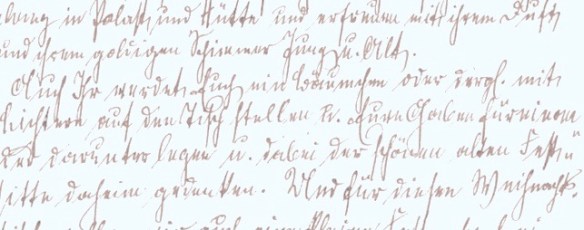 in Palast und Hütte und erfreuen mit ihrem Duft
und ihrem goldigen Schimmer Jung u. Alt.
Auch Ihr werdet Euch ein Bäumchen oder dergl. mit
Lichtern auf den Tisch stellen u. Eure Gaben für einan
der darunter legen u. dabei der schönen alten Fest-
sitte daheim gedenken. Und für diesen Weihnachts-
auch eine kleine